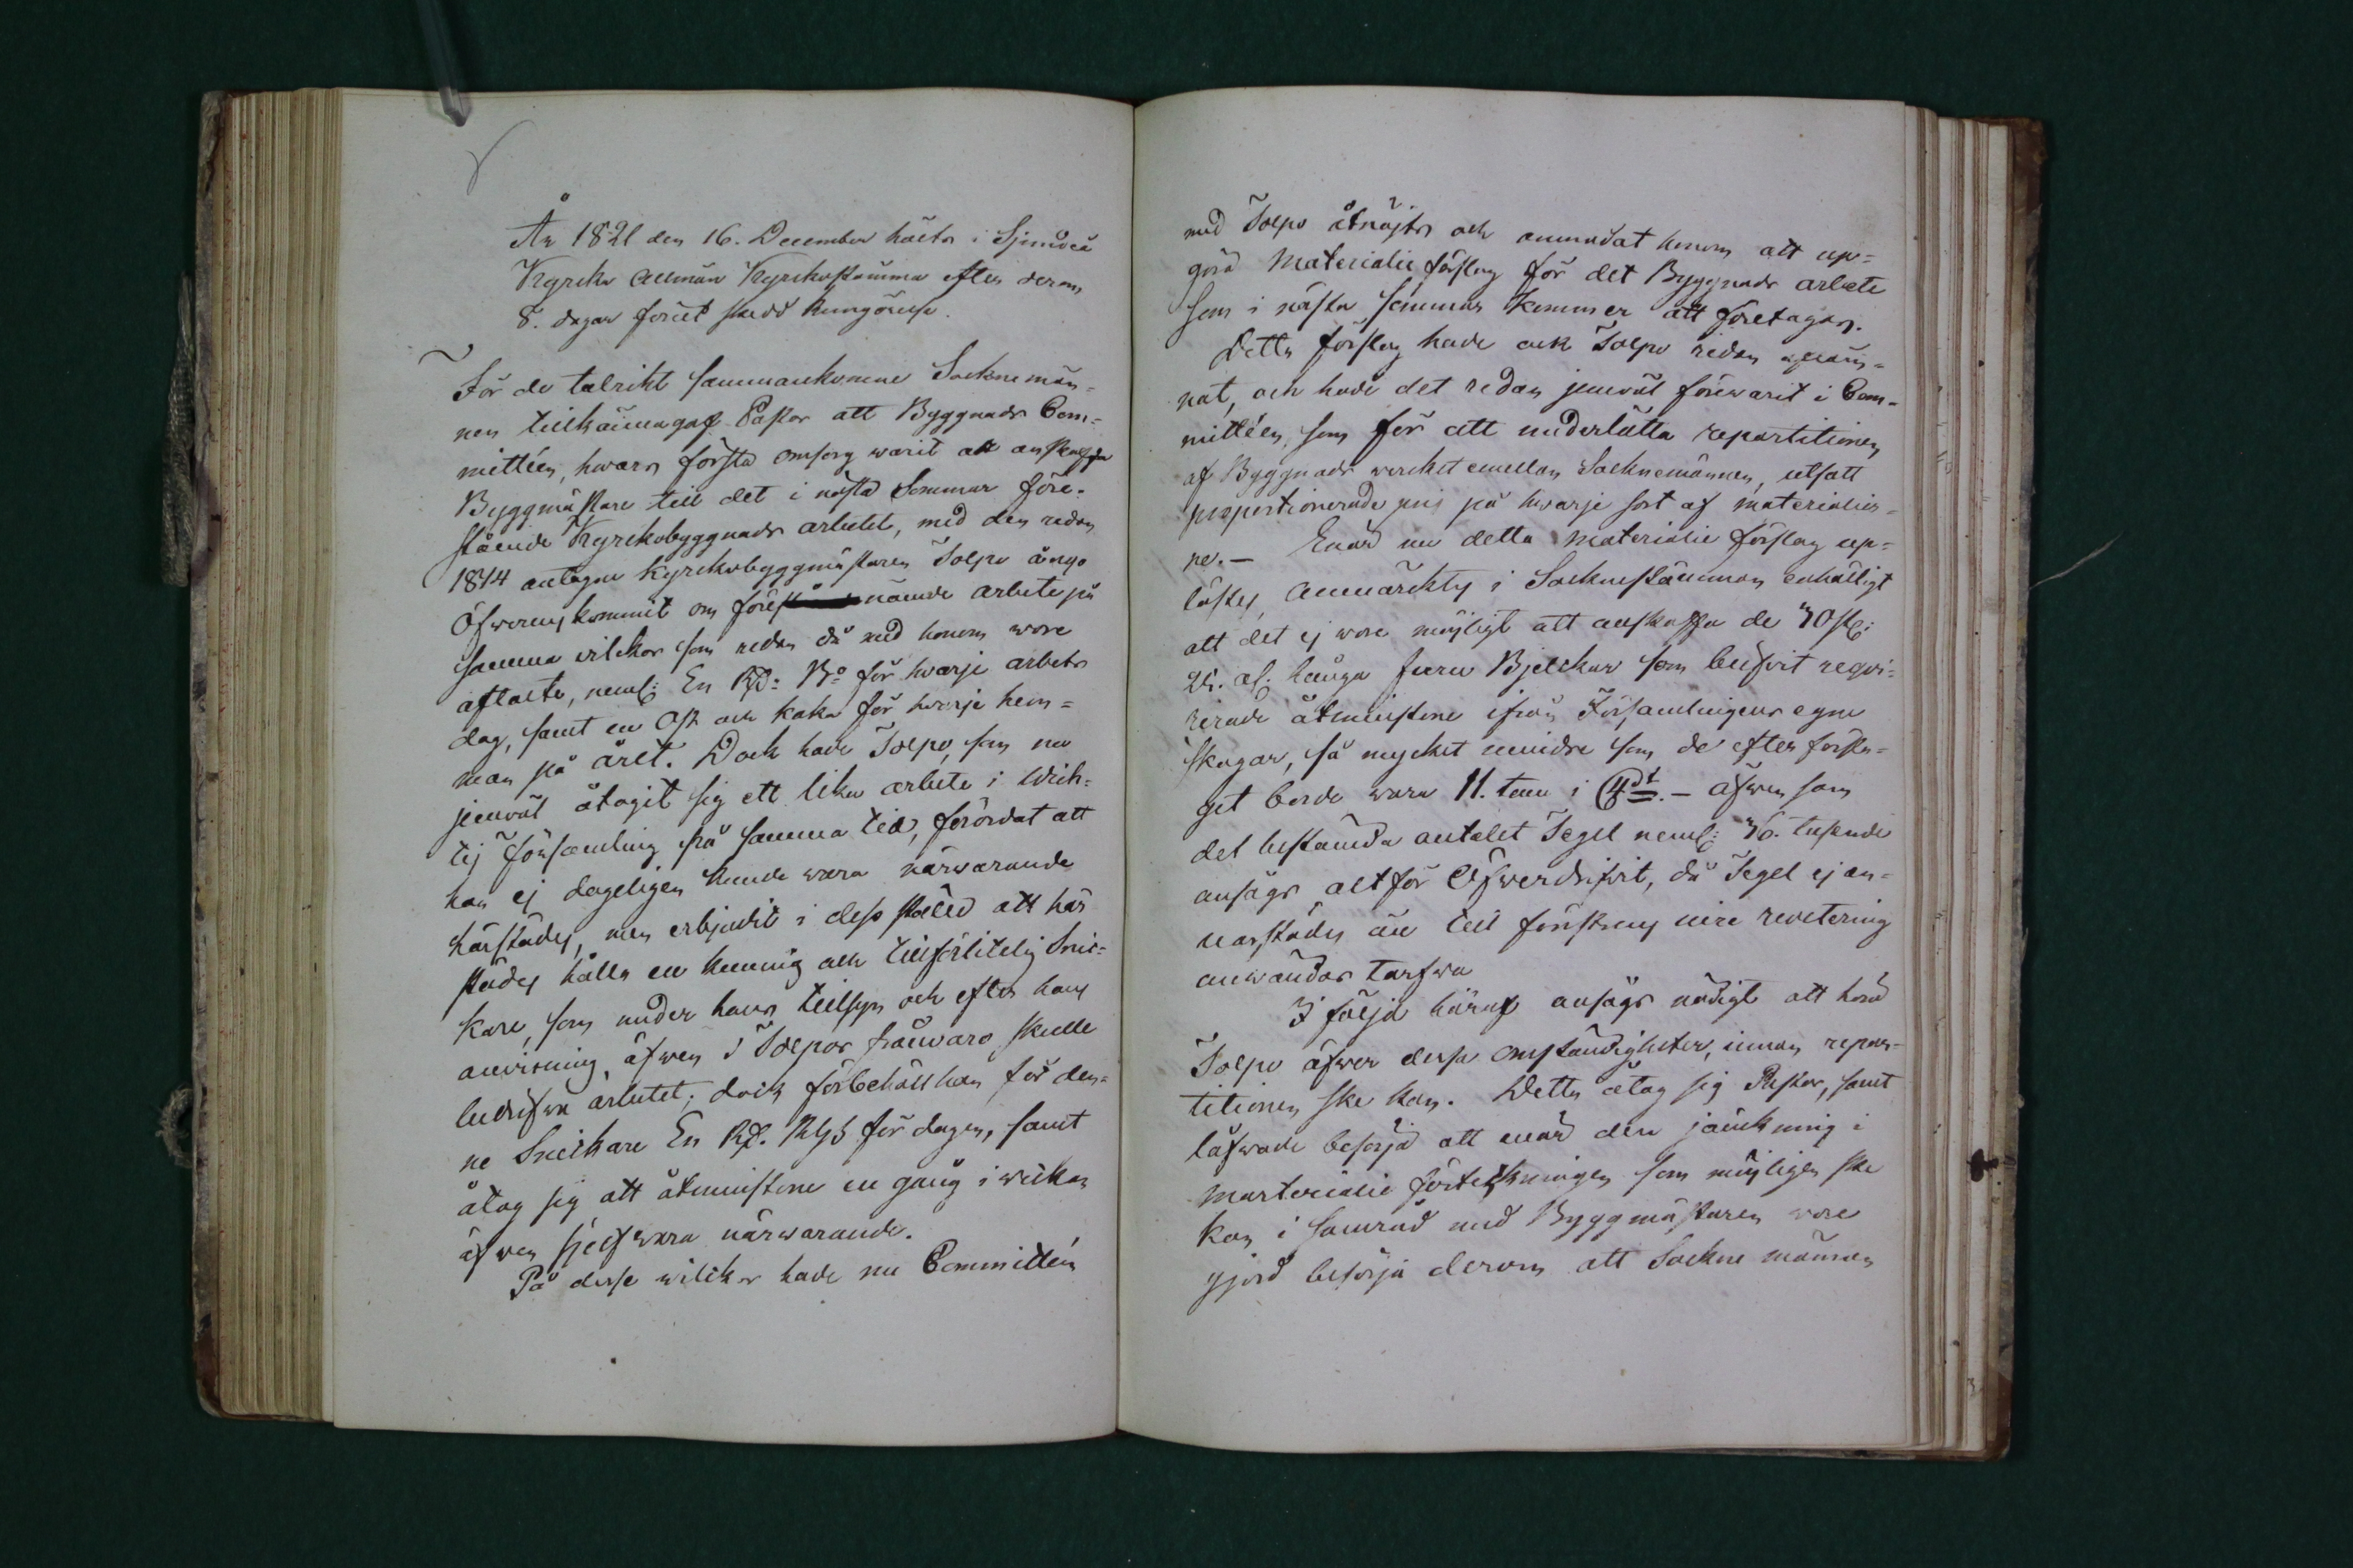 År 1821 den 16. December hölts i Sjundeå
Kyrcka Allmän Kyrckostämma efter derom
8. dagar förut skedd kungörelse.
För de talrikt sammankomne Socknemän-
nen tillkännagaf Pastor att Byggnads Com-
mittéen, hvars första omsorg warit att anskaffa
Byggmästare till det i nästa Sommar före-
stående Kyrckobyggnads arbetet, med den redan
1814 antagne Kyrckobyggmästaren Tolpo ången
öfwerenskommit om före nämde arbete på
samma wilckor som redan då med honom wore
aftalte, neml: En Rd: Bo för hwarje arbets
dag, samt en Ost och kaka för hwarje hem-
man på året. Dock hade Tolpo, som nu
jemväl åtagit sig ett lika arbete i Wich-
tis Församling på samma tid, förordat att
han ej dageligen kunde wara närwarande
härstädes, men erbjudit i dess ställe att här
städes hålla en kunnig och tillförlitelig Snic-
kare, som under hans tillsyn och efter hans
anvisning, äfwen i Tolpos frånwaro, skulle
bedrifwa arbetet; dock förbehöll han för den-
ne Snickare En Rd. Rgs för dagen, samt
åtog sig att åtminstone en gång i weckan
äfwen sjelf wara närwarande.
På desse wilckor hade nu Committéen
med Tolpo åtnöjts och anmodat honom att up-
göra Materialie förslag för det Byggnads arbete
som i nästa sommar kommer att företagas.
Detta förslag hade ock Tolpo redan afläm-
nat, och hade det redan jemväl förewarit i Com-
mittéen, som för att underlätta repartitionen
af Byggnads wircket emellan Socknemännen, utsatt
proportionerade pris på hwarje sort af materialier-
ne. - Enär nu detta Materialie förslag up-
lästes, anmärcktes i Sockenstämman enhälligt
att det ej wore möjligt att anskaffa de 70 st:
25. al. långa furu Bjelckar som blifvit reqvi-
rerade åtminstone ifrån Församlingens egne
skogar, så mycket mindre som de efter försla-
get borde wara 11. tum i - äfwen som
det bestämda antalet Tegel neml: 36. tusende
ansågs altför öfwerdrifwit, då Tegel ej an-
narstädes än till förstens revetering
anwändas tarfwa
I följd häraf ansågs nödigt att höra
Tolpo öfwer dessa omständigheter, innan repar-
titionen ske kan. Detta åtog sig Pastor, samt
låfwade besörja att enär den jämckning i
Materialie förteckningen som möjligen ske
kan, i samråd med Byggmästaren wore
gjord besörja derom att Sockne männen